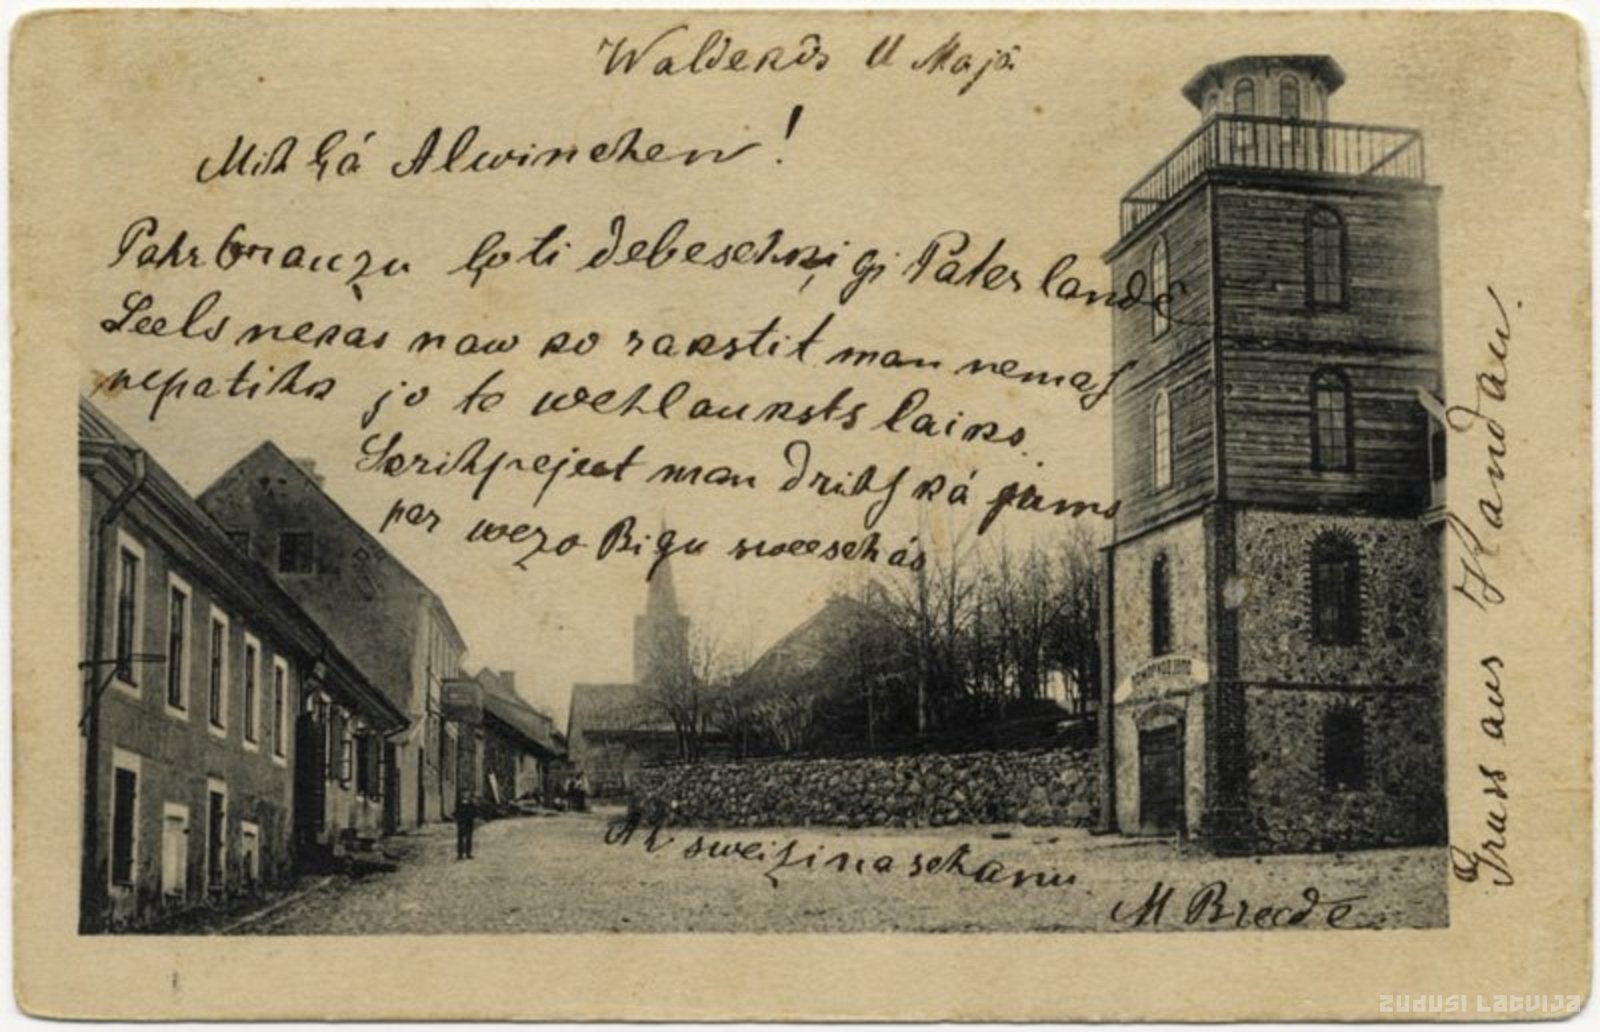 Waldekōs 11 Majā
Mihļá Alwinchen!
Pahrbrauzu ļoti debeschķigi Paterlandē
Seels nekas naw ko rakstit man nemaſ
nepatihk jo te wehl auksts laiks.
man drihſ ká jums
par wezo Rigu sweeschás
Ar sweizinaschanu
M Breedē
Gruss aus Kandau.
ZUDUSI LATVIJA